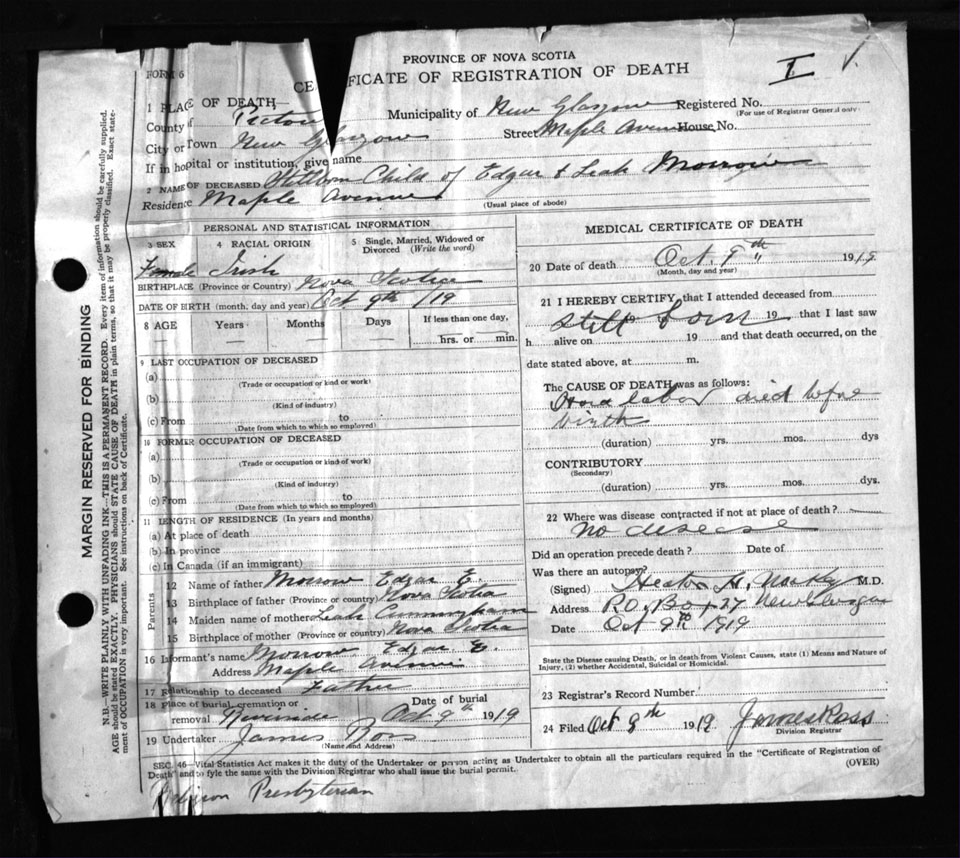 PROVINCE OF NOVA SCOTIA
FORM 6
CE FICATE OF REGISTRATION OF DEATH
I
1 PLACE OF DEATH—
County of Pictou Municipality of New Glasgow Registered No.
(For use of Registrar General only)
City or Town New Glasgow Street Maple Avenue House No.
If in hospital or institution, give name
2 NAME OF DECEASED Stillborn Child of Edgar & Leah Morrow
Residence Maple Avenue (Usual place of abode)
PERSONAL AND STATISTICAL INFORMATION
3 SEX 4 RACIAL ORIGIN 5 Single, Married, Widowed or Divorced (Write the word)
Female Irish
BIRTHPLACE (Province or Country) Nova Scotia
DATE OF BIRTH (month, day and year) Oct 9th /19
8 AGE Years Months Days If less than one day,
hrs. or min.
9 LAST OCCUPATION OF DECEASED
(a)
(Trade or occupation or kind or work)
(b)
(Kind of industry)
(c) From to
(Date from which to which so employed)
10 FORMER OCCUPATION OF DECEASED
(a)
(Trade or occupation or kind of work)
(b)
(Kind of industry)
(c) From to
(Date from which to which so employed)
11 LENGTH OF RESIDENCE (In years and months)
(a) At place of death
(b) In province
(c) In Canada (if an immigrant)
Parents
12 Name of father Morrow Edgar E.
13 Birthplace of father (Province or country) Nova Scotia
14 Maiden name of mother Leah Cunningham
15 Birthplace of mother (Province or country) Nova Scotia
16 Informant's name Morrow Edgar E.
Address Maple Avenue
17 Relationship to deceased Father
18 Place of burial, cremation or Date of burial
removal Riverside Oct 9th 1919
19 Undertaker James Ross
(Name and Address)
MEDICAL CERTIFICATE OF DEATH
20 Date of death Oct. 9th 1919
(Month, day and year)
21 I HEREBY CERTIFY, that I attended deceased from
still born 19 that I last saw
h alive on 19 and that death occurred, on the
date stated above, at m.
The CAUSE OF DEATH was as follows:
Hard labor died before
birth
(duration) yrs. mos. dys
CONTRIBUTORY
(Secondary)
(duration) yrs. mos. dys.
22 Where was disease contracted if not at place of death?
No disease
Did an operation precede death? Date of
Was there an autopsy?
(Signed) H. M.D.
Address P.O. Box 27 New Glasgow
Date Oct 9th 1919
State the Disease causing Death, or in death from Violent Causes, state (1) Means and Nature of
Injury, (2) whether Accidental, Suicidal or Homicidal.
23 Registrar's Record Number
24 Filed Oct 9th 1919 James Ross
Division Registrar
SEC. 46—Vital Statistics Act makes it the duty of the Undertaker or person acting as Undertaker to obtain all the particulars required in the "Certificate of Registration of
Death" and to fyle the same with the Division Registrar who shall issue the burial permit. (OVER)
Religion Presbyterian
MARGIN RESERVED FOR BINDING
N.B.—WRITE PLAINLY WITH UNFADING INK—THIS IS A PERMANENT RECORD. Every item of information should be carefully supplied.
AGE should be stated EXACTLY. PHYSICIANS should STATE CAUSE OF DEATH in plain terms, so that it may be properly classified. Exact state-
ment of OCCUPATION is very important. See instructions on back of Certificate.